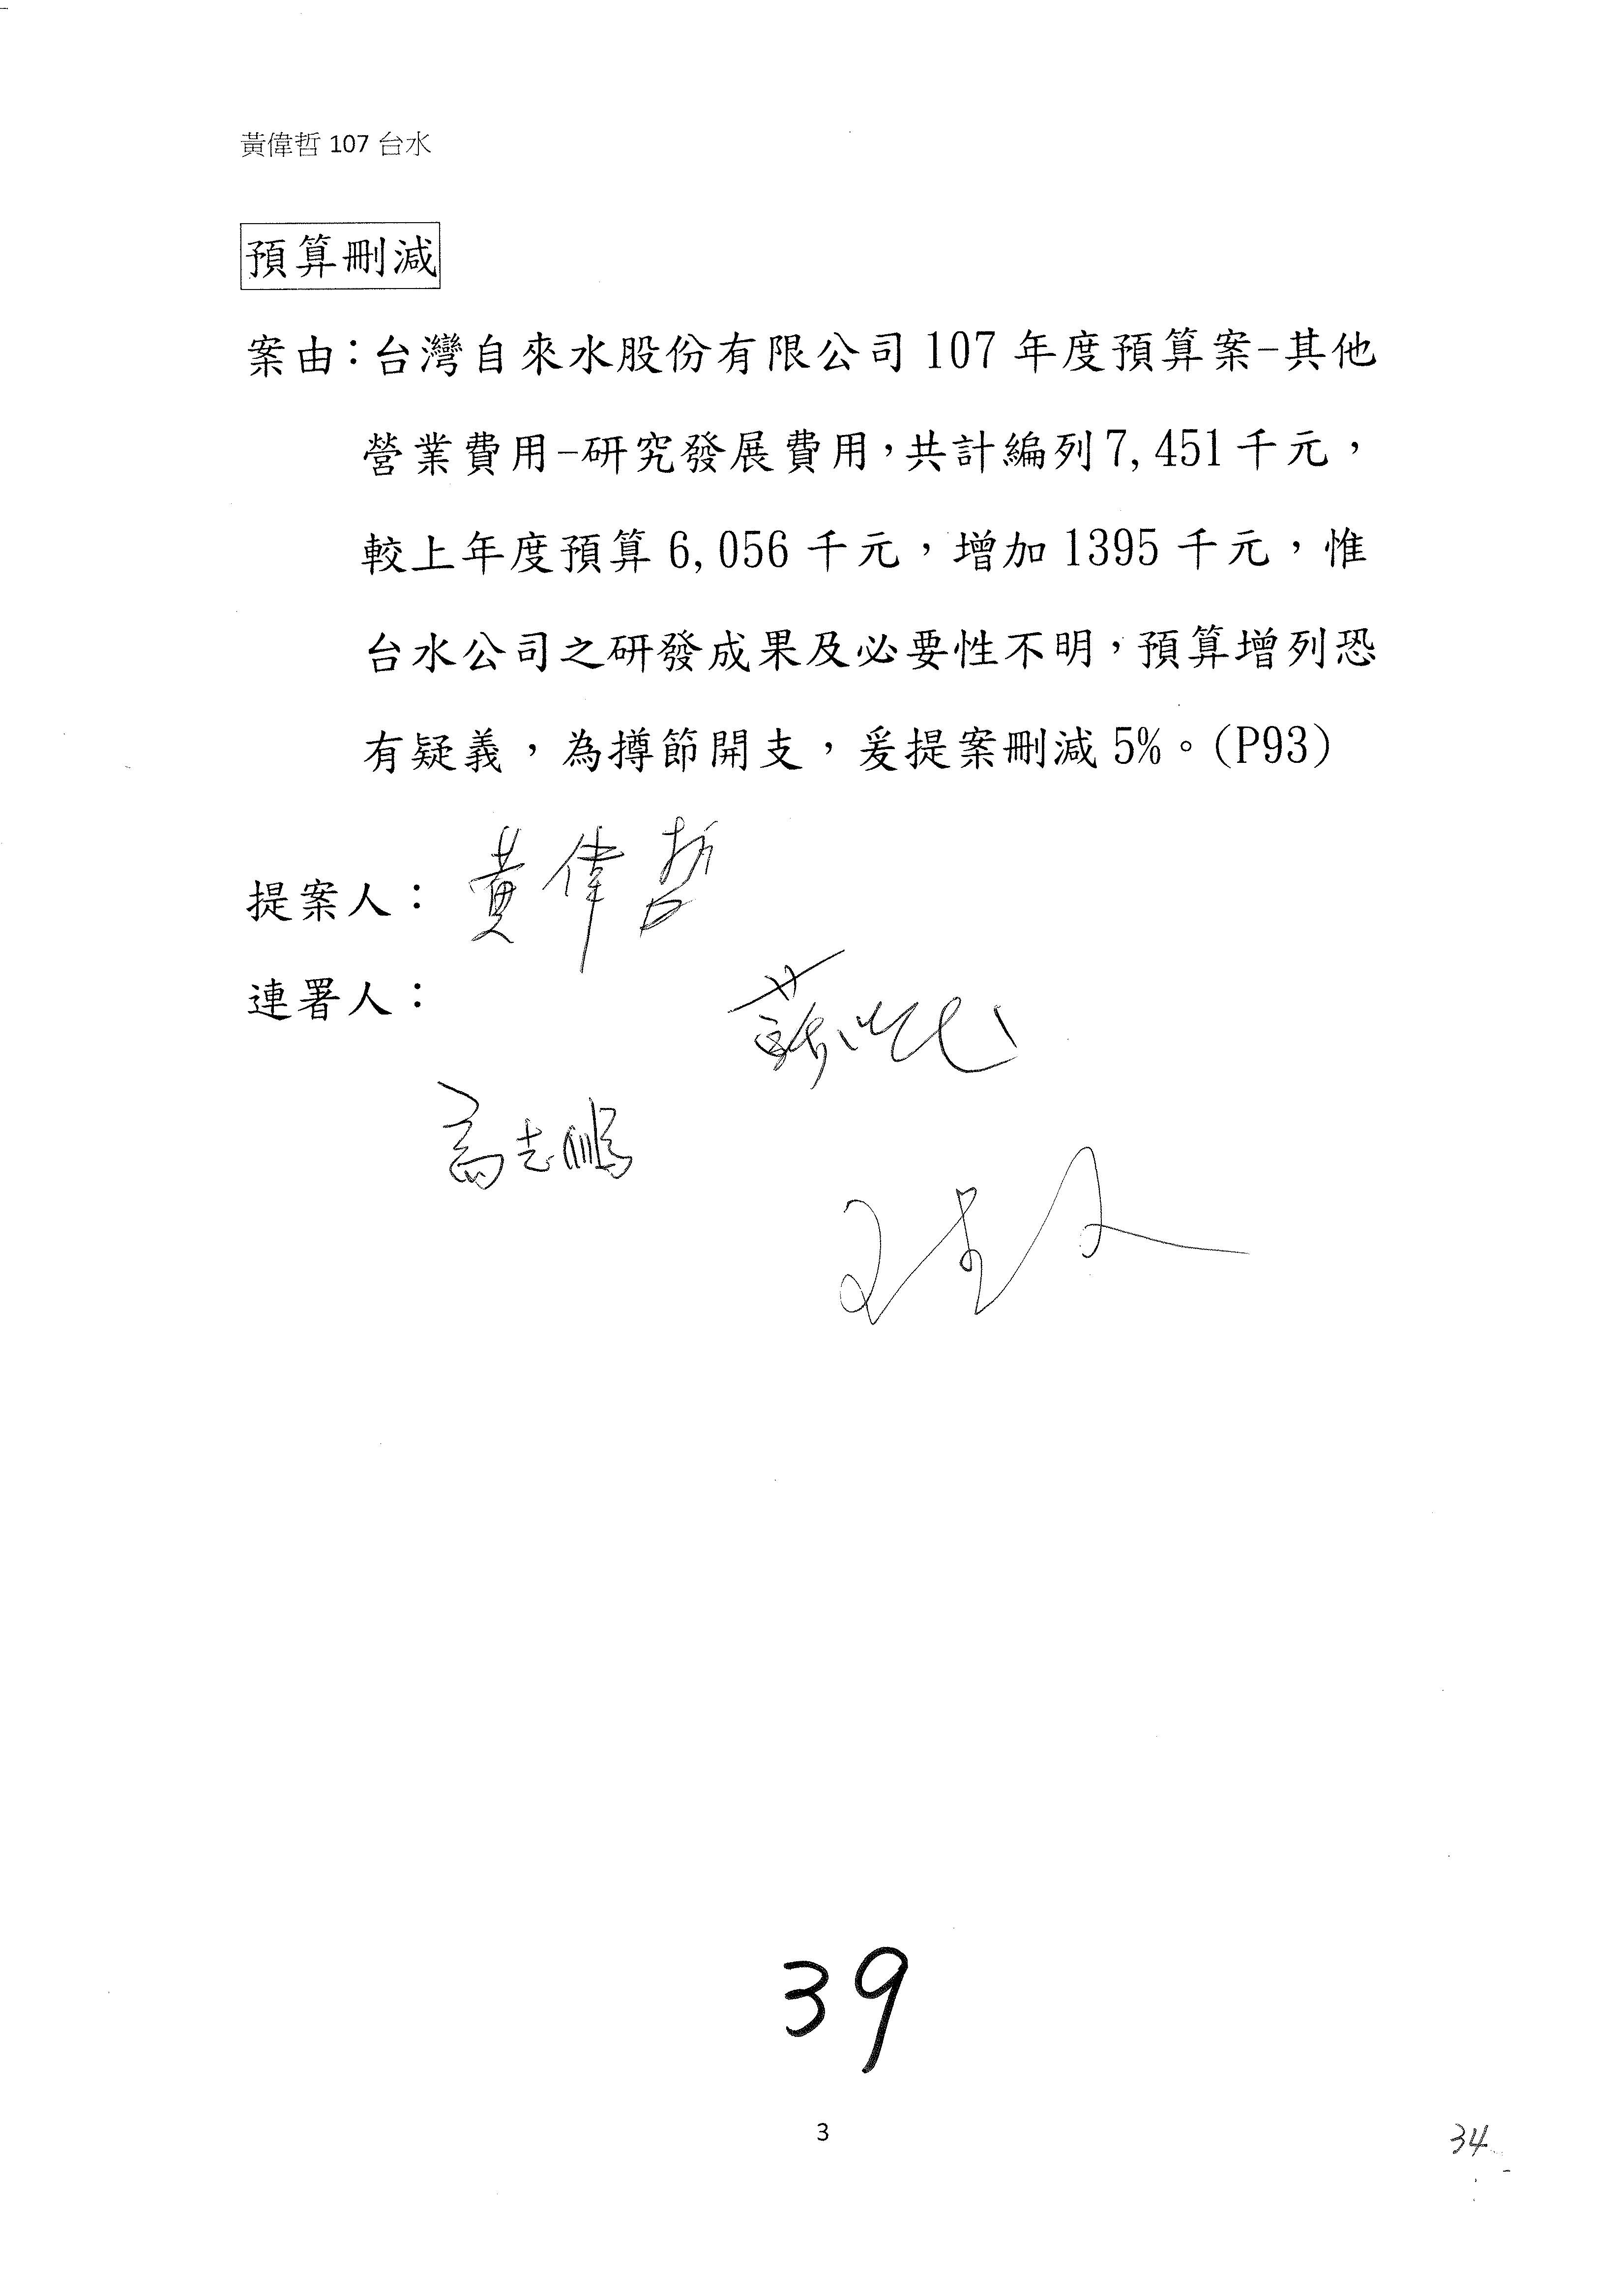 黃偉哲 107 台水
預算刪減
案由：台灣自來水股份有限公司 107 年度預算案-其他
營業費用-研究發展費用，共計編列 7,451 千元，
較上年度預算 6,056 千元，增加 1395 千元，惟
台水公司之研發成果及必要性不明，預算增列恐
有疑義，為撙節開支，爰提案刪減 5%。(P93)
提案人：黃偉哲
連署人：
高志鵬
39
3
34